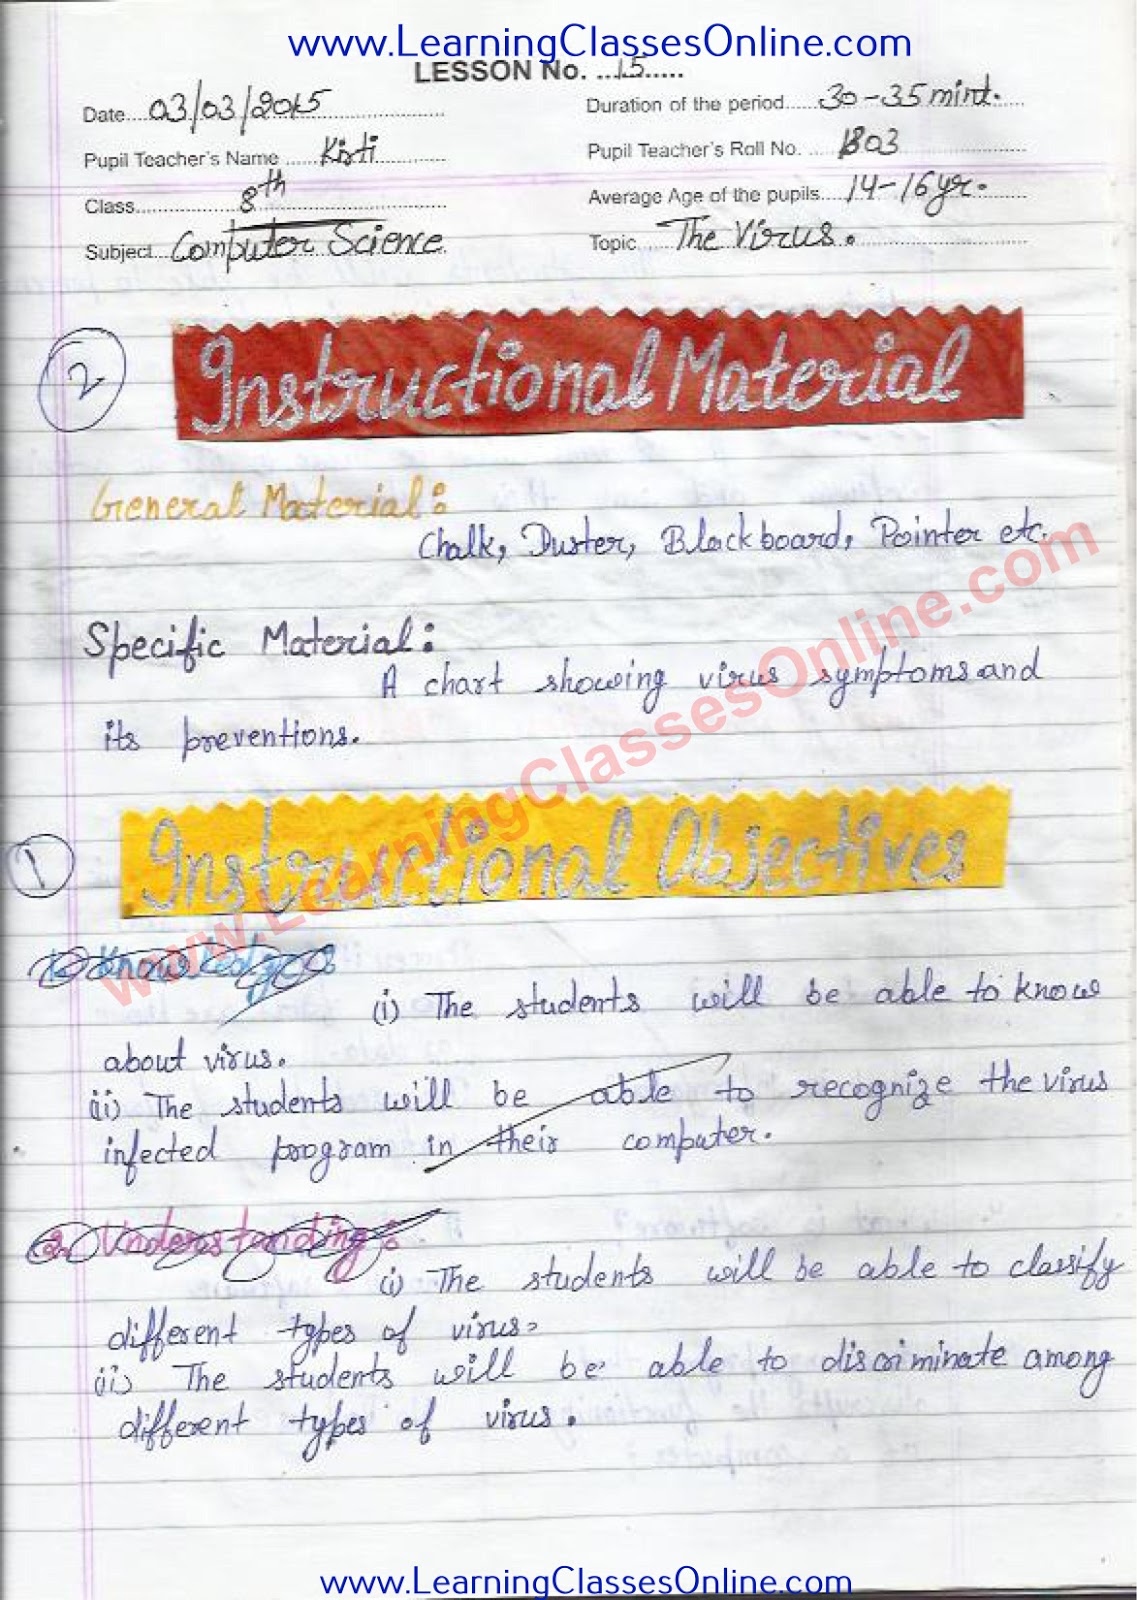 www.LearningClassesOnline.com
LESSON No. ...15.....
Date....03/03/2015
Duration of the period......30-35 mint.
Pupil Teacher's Name ......Kirti
Pupil Teacher's Roll No. .....1803
Class..................8th
Average Age of the pupils.....14-16 yr.
Subject....Computer Science
Topic ......The Virus.
2
Instructional Material
General Material:
Chalk, Duster, Blackboard, Pointer etc.
Specific Material:
A chart showing virus symptoms and
its preventions.
www.LearningClassesOnline.com
1
Instructional Objectives
1. Knowledge:
(i) The students will be able to know
about virus.
ii) The students will be able to recognize the virus
infected program in their computer.
2. Understanding:
(i) The students will be able to classify
different types of virus.
ii) The students will be able to discriminate among
different types of virus.
www.LearningClassesOnline.com